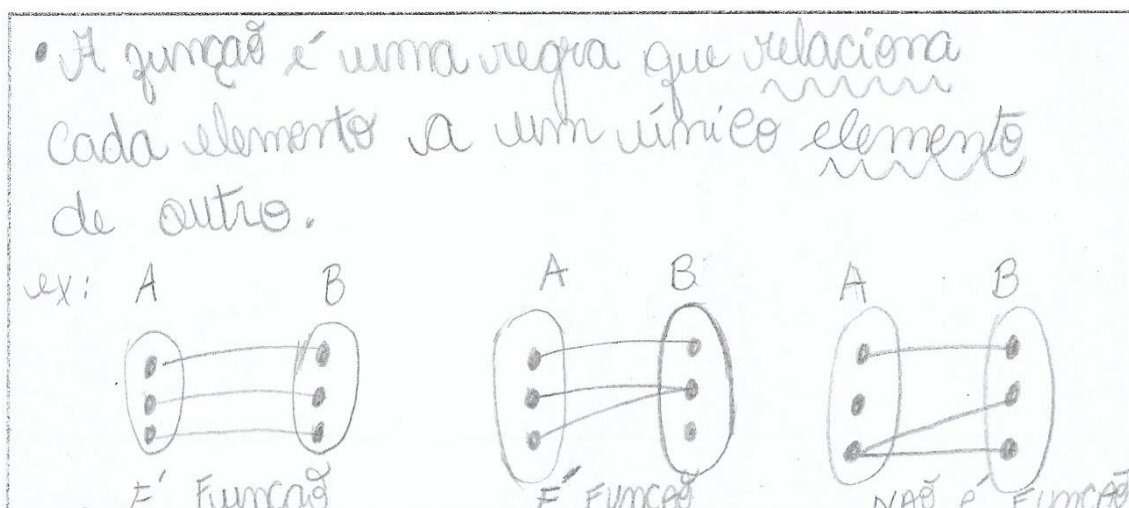 • A função é uma regra que relaciona
cada elemento a um único elemento
de outro.
ex: A B A B A B
É FUNÇAÕ É FUNÇAÕ NAÕ É FUNÇAÕ